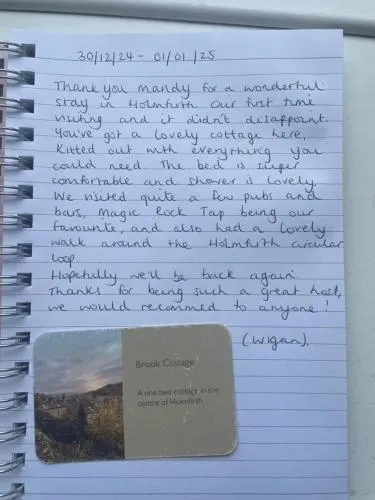 30/12/24 - 01/01/25
Thank you Mandy for a wonderful
stay in Holmfirth. Our first time
visiting and it didn't disappoint.
You've got a lovely cottage here,
kitted out with everything you
could need. The bed is super
comfortable and shower is lovely.
We visited quite a few pubs and
bars, Magic Rock Tap being our
favourite, and also had a lovely
walk around the Holmfirth circular
loop.
Hopefully we'll be back again.
Thanks for being such a great host,
we would recommed to anyone!
(Wigan).
Brook Cottage
A one bed cottage in the
centre of Holmfirth